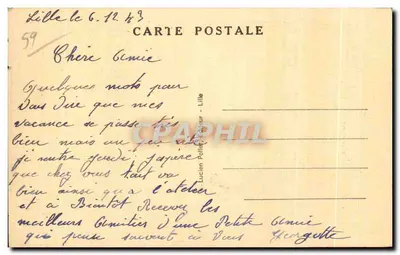 Lille le 6.12.43
59
CARTE POSTALE
Chère Amie
Quelques mots pour
Vous Dire que mes
vacance se passe très
bien mais un peu vite
je rentre Jeudi j'espère
que chez vous tout va
bien ainsi qu'a l'atelier
et à Bientôt Recevez les
meilleurs Amitiés d'une Petite Amie
qui pense souvent à Vous Georgette
CPAPHIL
Lille